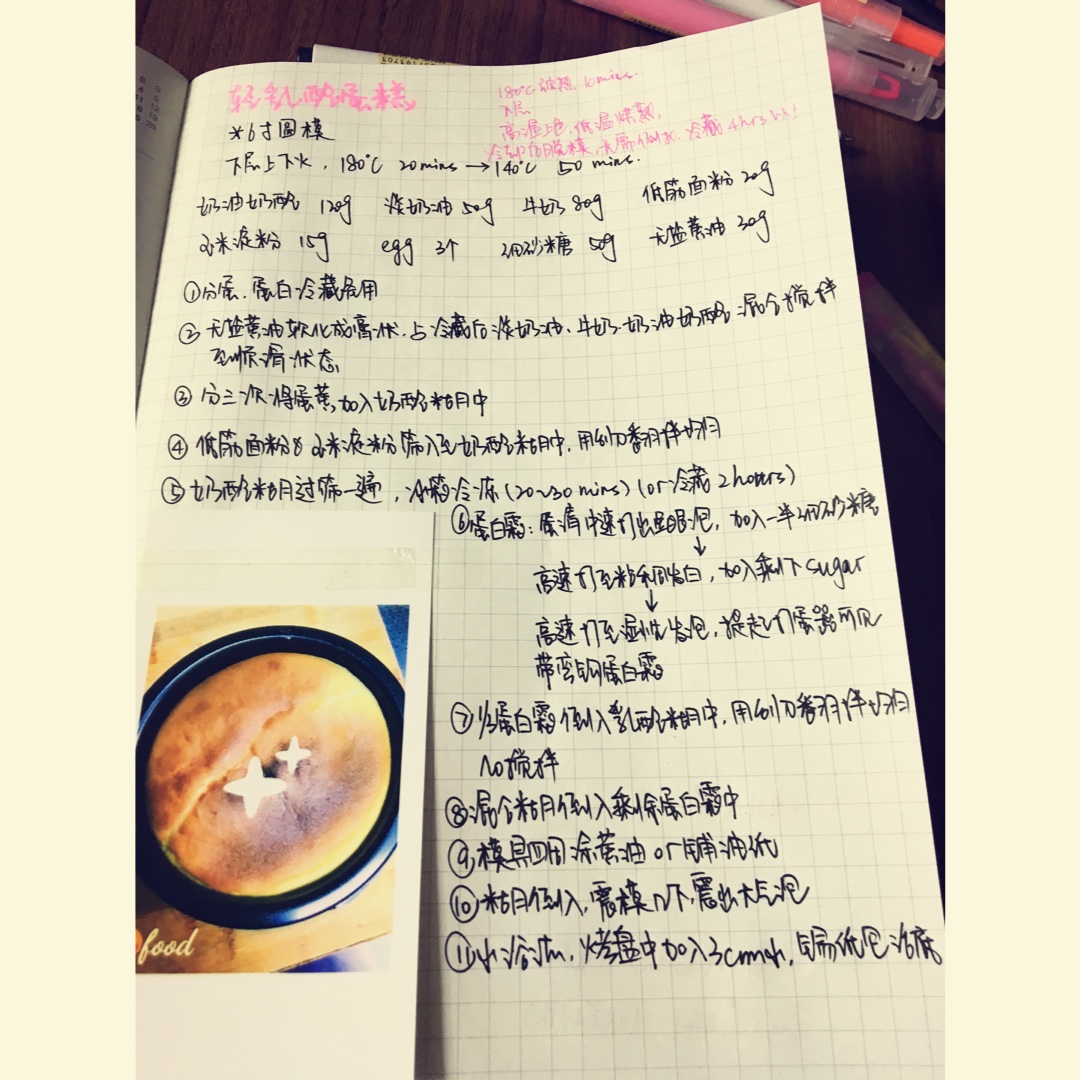 轻乳酪蛋糕
180℃预热 10mins.
下层
高温上色,低温烘熟,
冷却后脱模,无需倒扣,冷藏4hrs以上
*6寸圆模
下层上下火,180℃ 20mins→140℃ 50mins.
奶油奶酪 120g 淡奶油50g 牛奶80g 低筋面粉20g
玉米淀粉 15g egg 3个 细砂糖 50g 无盐黄油30g
①分蛋,蛋白冷藏备用
②无盐黄油软化成膏状,与冷藏后淡奶油、牛奶、奶油奶酪混合搅拌
至顺滑状态
③分三次将蛋黄加入奶酪糊中
④低筋面粉&玉米淀粉筛入至奶酪糊中,用刮刀翻拌均匀
⑤奶酪糊过筛一遍,冰箱冷冻(20~30mins)(or冷藏2hours)
⑥蛋白霜:蛋清中速打出鱼眼泡,加入一半细砂糖
↓
高速打至粘稠发白,加入剩下sugar
↓
高速打至湿性发泡,提起打蛋器可见
带弯钩蛋白霜
⑦1/3蛋白霜倒入乳酪糊中,用刮刀翻拌均匀
no搅拌
⑧混合糊倒入剩余蛋白霜中
⑨模具四周涂黄油or铺油纸
⑩糊倒入,震模几下,震出大气泡
⑪水浴法,烤盘中加入3cm水,锡纸包活底
food